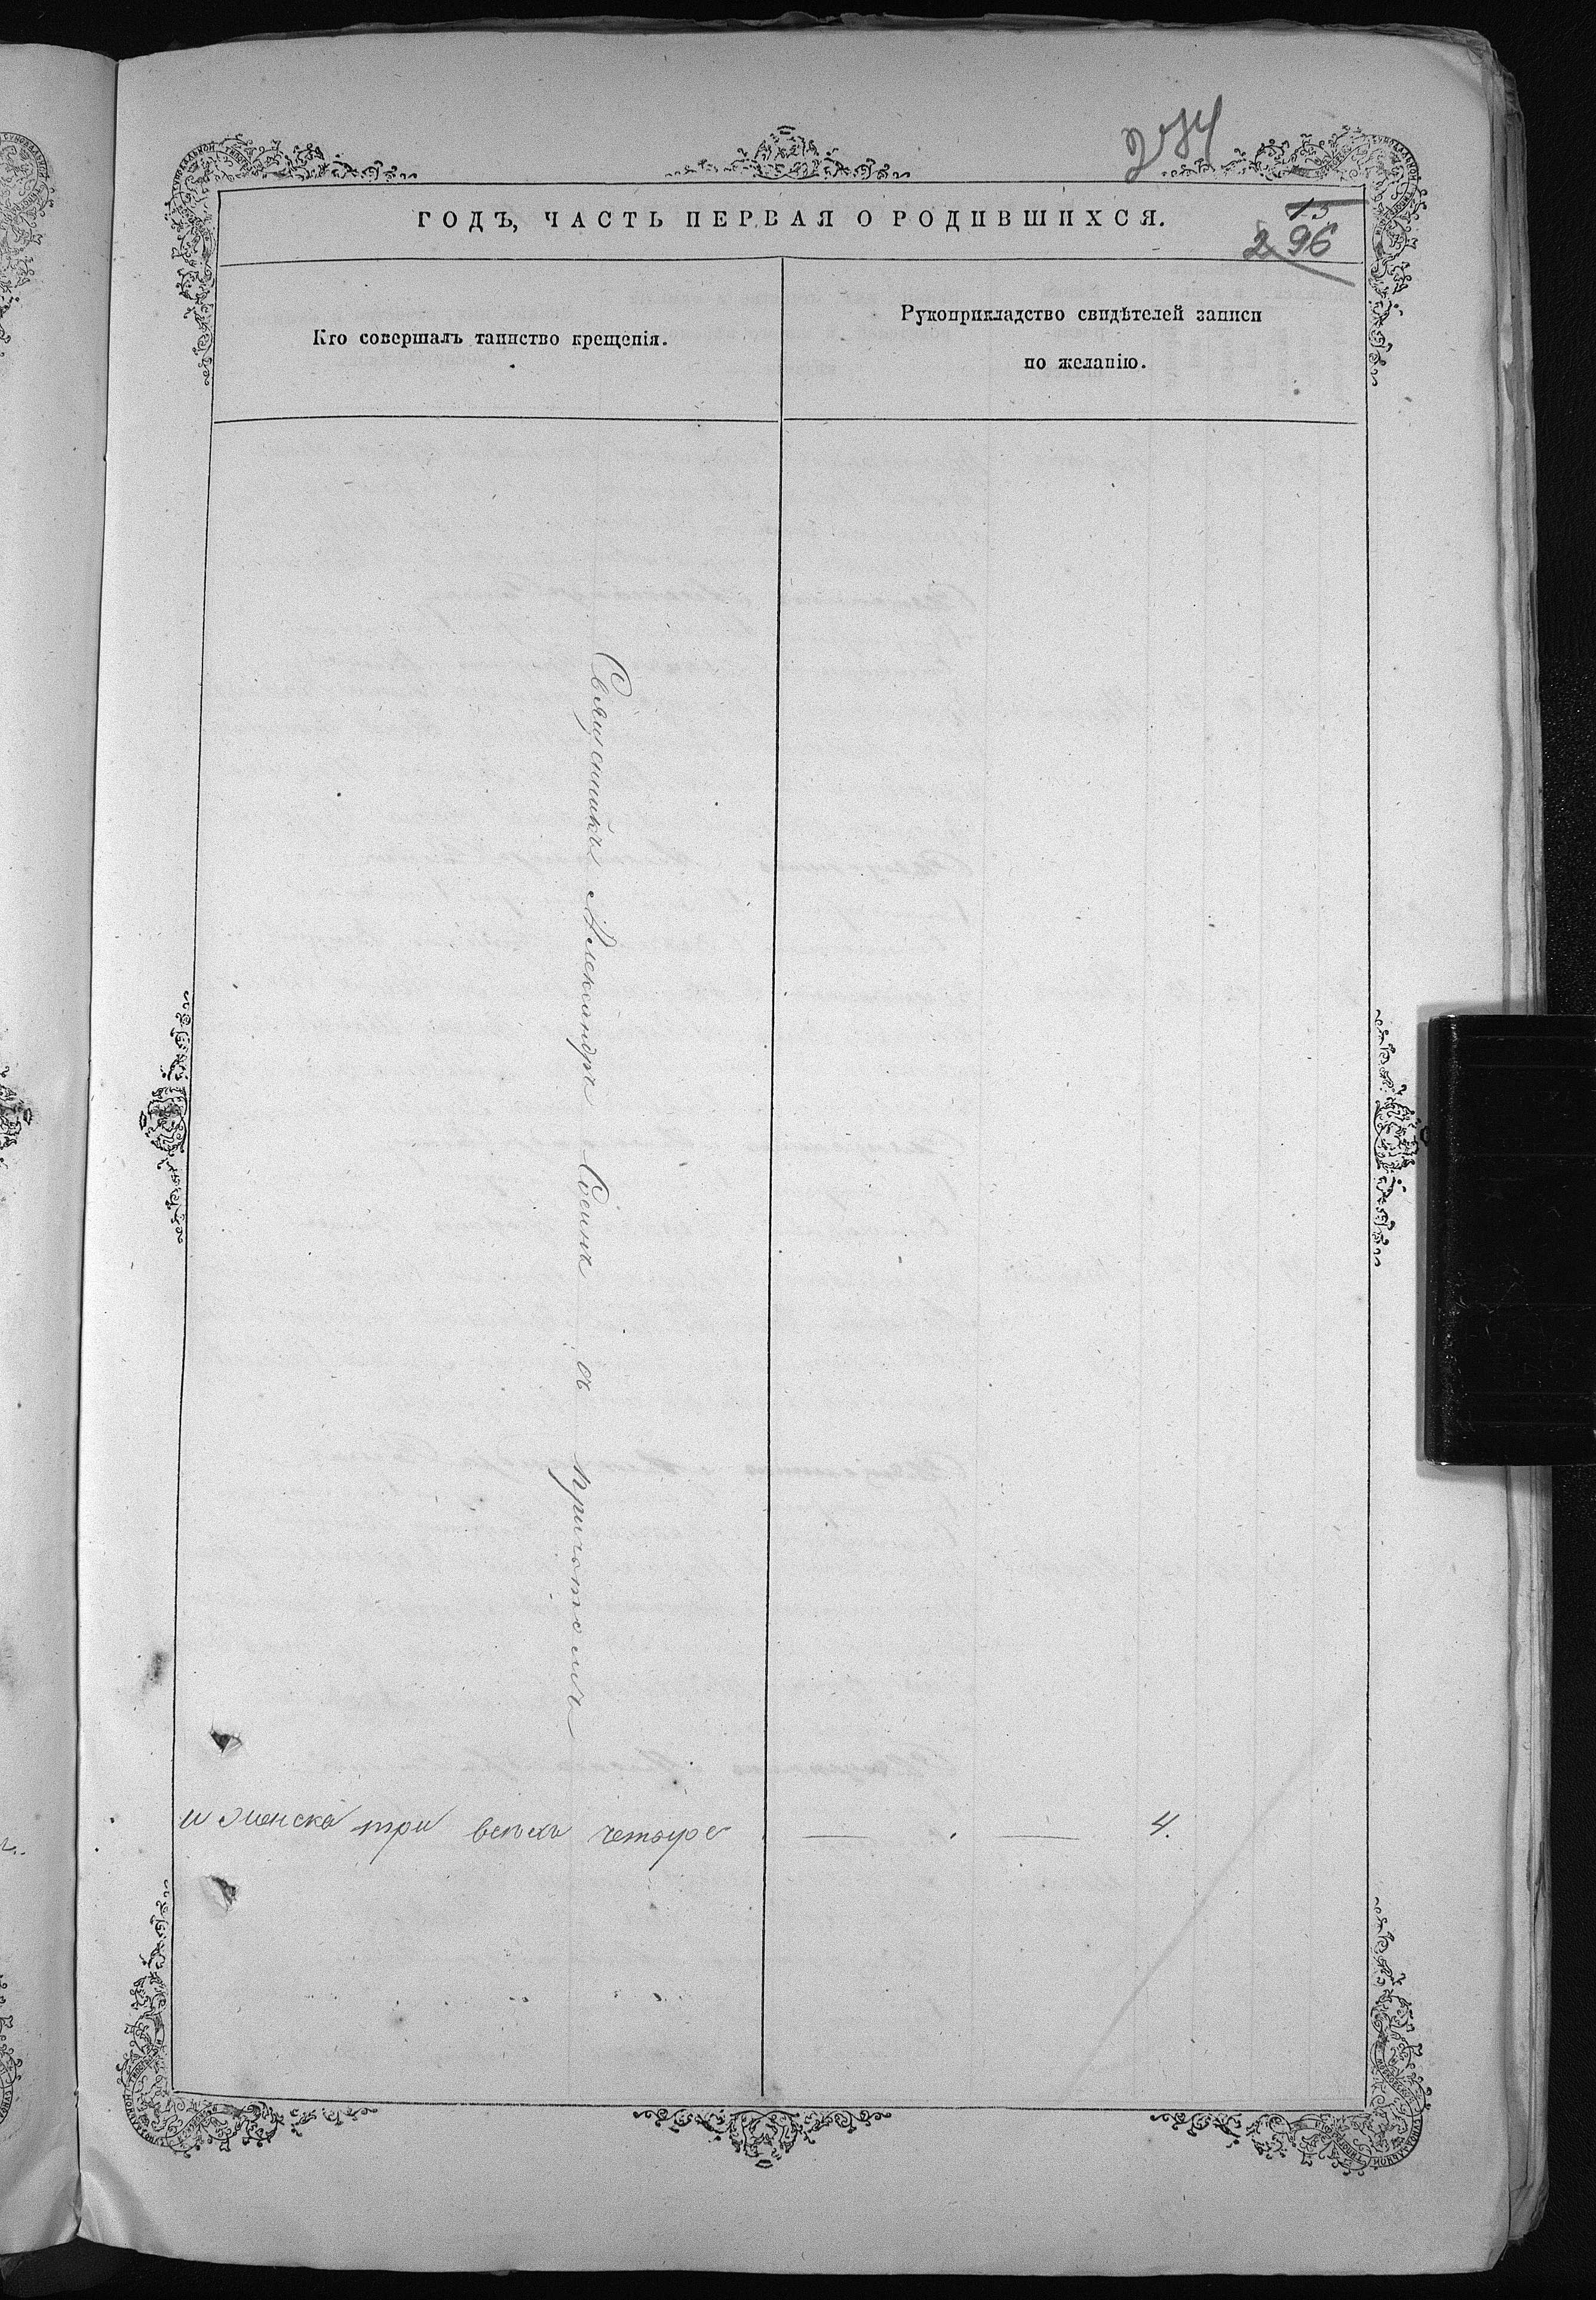 ГОДЪ, ЧАСТЬ ПЕРВАЯ О РОДИВШИХСЯ.
15
296
Кто совершалъ таинство крещенія.
Рукоприкладство свидѣтелей записи
по желанію.
Священникъ Александръ Сосинъ съ причтомъ
и женска три всѣхъ четыре 4.